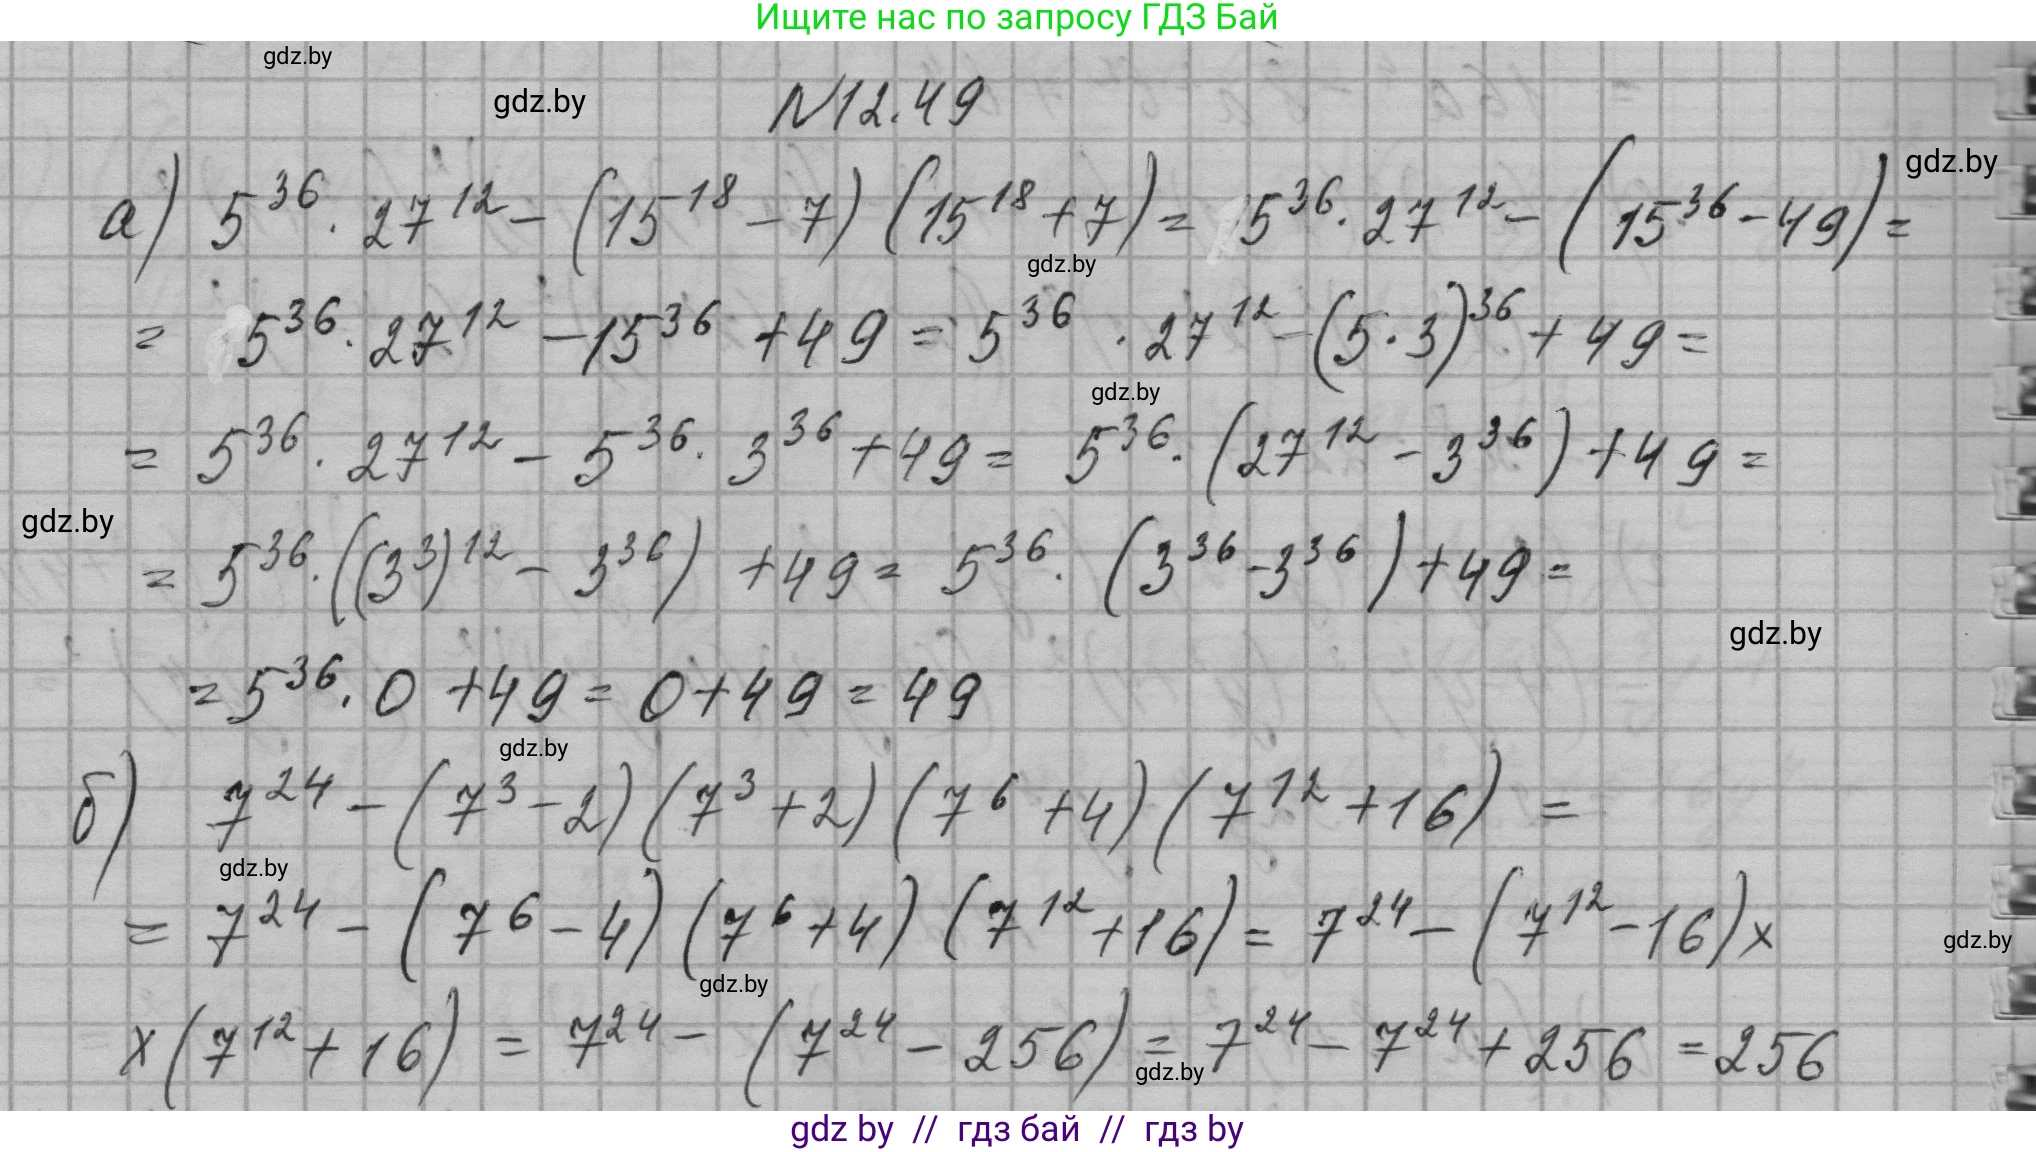 Ищите нас по запросу ГДЗ Бай
gdz.by
gdz.by
N12.49
gdz.by
а) 5^36 · 27^12 - (15^18 - 7) (15^18 + 7) = 5^36 · 27^12 - (15^36 - 49) =
gdz.by
= 5^36 · 27^12 - 15^36 + 49 = 5^36 · 27^12 - (5 · 3)^36 + 49 =
gdz.by
= 5^36 · 27^12 - 5^36 · 3^36 + 49 = 5^36 · (27^12 - 3^36) + 49 =
gdz.by
= 5^36 · ((3^3)^12 - 3^36) + 49 = 5^36 · (3^36 - 3^36) + 49 =
gdz.by
= 5^36 · 0 + 49 = 0 + 49 = 49
gdz.by
б) 7^24 - (7^3 - 2) (7^3 + 2) (7^6 + 4) (7^12 + 16) =
gdz.by
= 7^24 - (7^6 - 4) (7^6 + 4) (7^12 + 16) = 7^24 - (7^12 - 16) x
gdz.by
gdz.by
x (7^12 + 16) = 7^24 - (7^24 - 256) = 7^24 - 7^24 + 256 = 256
gdz.by
gdz by // гдз бай // гдз by